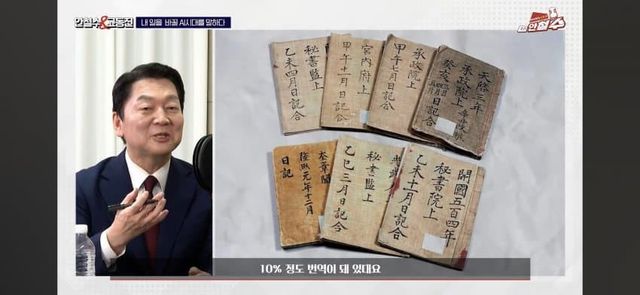 안철수&고동진
내 일을 바꿀 AI시대를 말하다
안철수
秘書監上
乙未四月日記合
宮內府上
甲午十一月日記合
承政院上
甲午七月日記合
天啓三年
承政院上
癸亥
日記合
奎章閣
隆熙元年十二月
日記
秘書監上
乙巳三月日記合
開國五百四年
秘書院上
乙未十一月日記合
10% 정도 번역이 돼 있대요